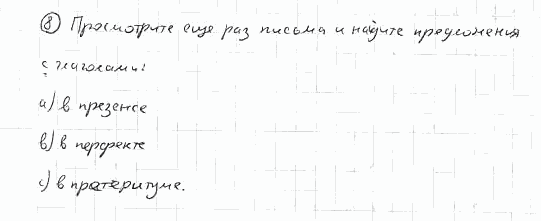 ⑧ Просмотрите еще раз письма и найдите предложения
с глаголами:
a) в презенсе
b) в перфекте
c) в претеритуме.